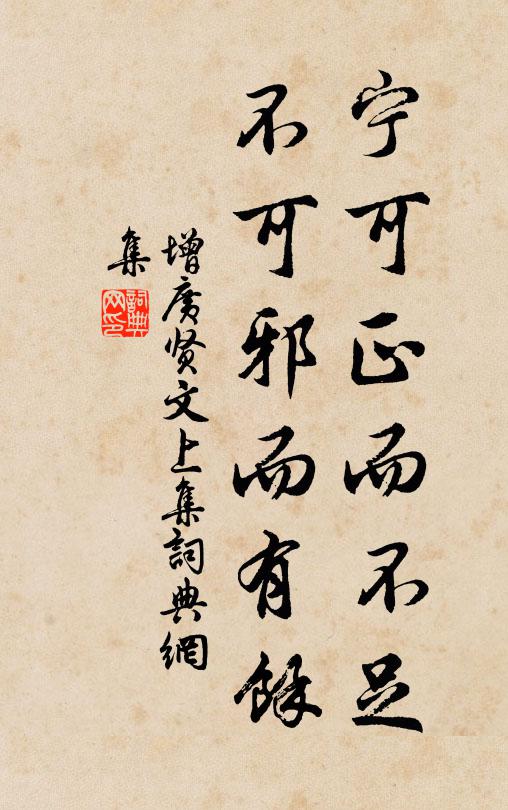 宁可正而不足
不可邪而有餘
增广贤文上集詞典網
集
詞典
网印